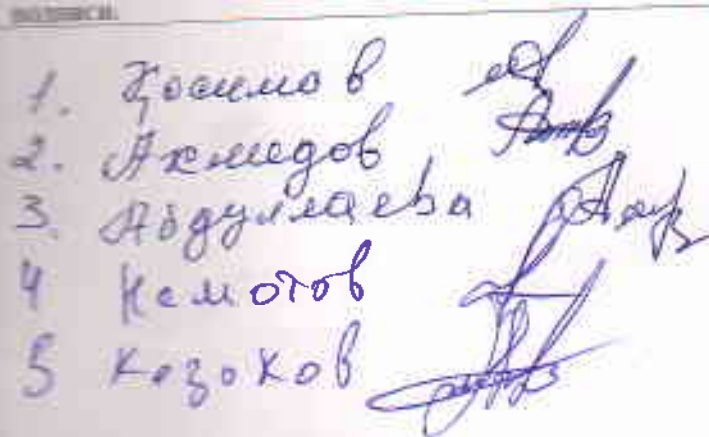 подписи.
1. Қосимов
2. Ахмедов
3. Абдуллаева
4 Немотов
5 Козоков